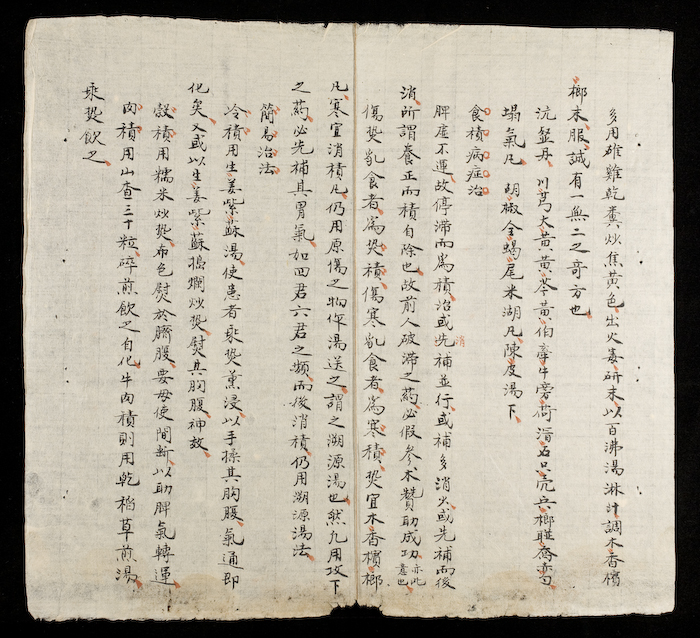 多用雄雞乾糞炒焦黃色出火毒研末以百沸湯淋汁調木香檳
榔末服誠有一無二之奇方也
沆瀣丹 川芎大黃黃芩黃伯牽牛旁荷滑石只壳兵榔連喬赤芍
塌氣凡 胡椒全蝎尾米湖凡陳皮湯下
食積病症治
脾虛不運故停滯而爲積治或先消補並行或補多消少或先補而後
消所謂養正而積自除也故前人破滯之药必假參朮贊助成功亦此意也
傷热乱食者爲热積傷寒乱食者爲寒積热宜木香檳榔
凡寒宜消積凡仍用原傷之物作湯送之謂之溯源湯也然凡用攻下
之药必先補其胃氣如四君六君之類而後消積仍用溯源湯法
簡易治法
冷積用生姜紫蘇湯使患者乘热薰浸以手揉其胸腹氣通即
化矣又或以生姜紫蘇搗爛炒热熨其胸腹神效
穀積用糯米炒热布包熨於臍腹要毋使間斷以助脾氣轉運
肉積用山查三十粒碎煎飲之自化牛肉積則用乾稻草煎湯
乘热飲之